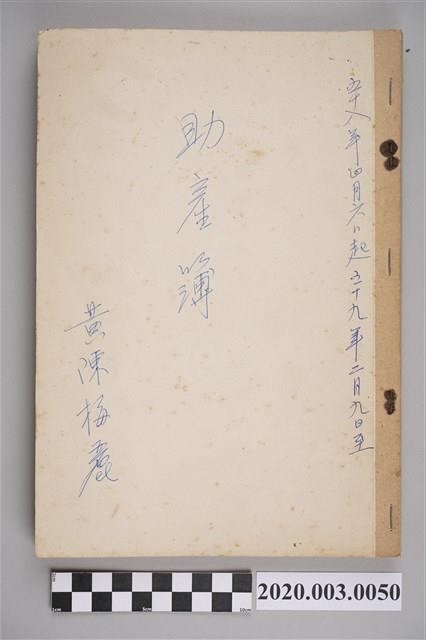 五十八年四月六日起五十九年二月九日至
助產簿
黃陳梅麗
1cm
5cm
10cm
2020.003.0050